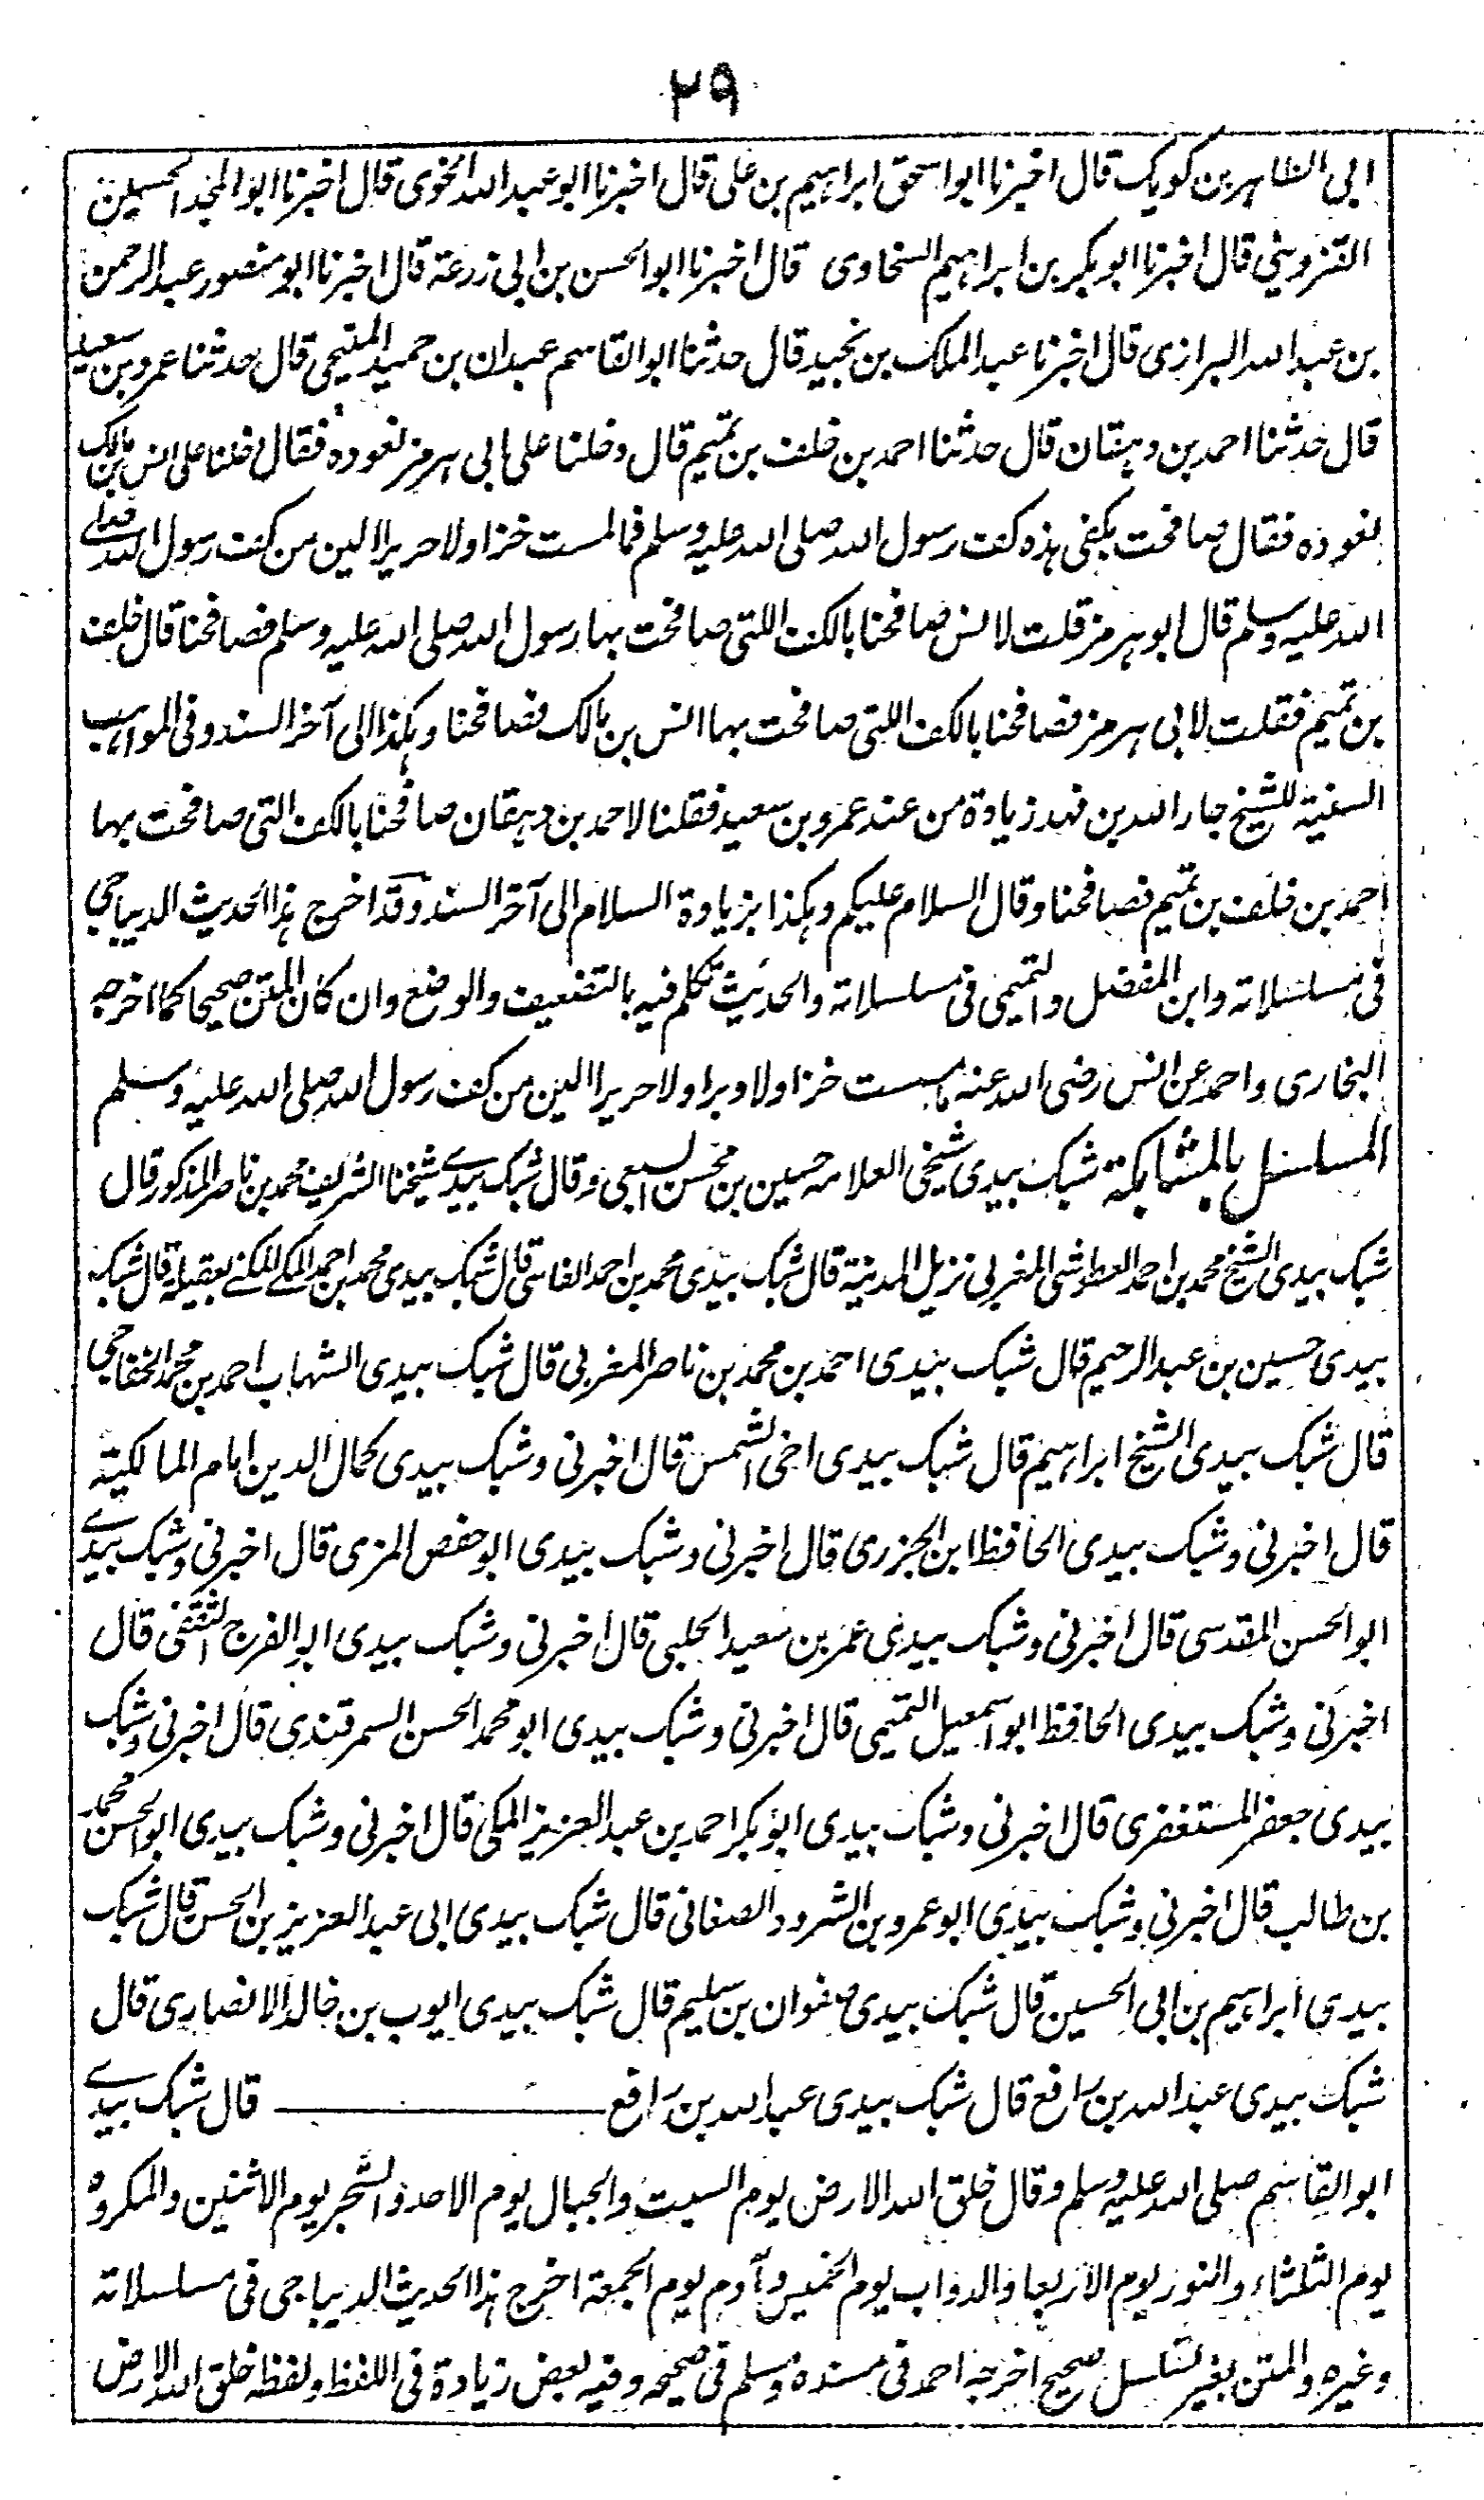 ٢٩
ابی الطاہر بن کویک قال اخبرنا ابو اسحق ابراہیم بن علی قال اخبرنا ابو عبد اللہ الخوی قال اخبرنا ابو المجد الحسین
القزوینی قال اخبرنا ابو بکر بن ابراہیم السخاوی قال اخبرنا ابو الحسن بن ابی زرعۃ قال اخبرنا ابو منصور عبد الرحمن
بن عبد اللہ البرازی قال اخبرنا عبد الملک بن نجید قال حدثنا ابو القاسم عبدان بن حمید المنیحی قال حدثنا عمرو بن سعید
قال حدثنا احمد بن دہقان قال حدثنا احمد بن خلف بن تمیم قال دخلنا علی ابی ہرمز نعودہ فقال دخلنا علی انس بن مالک
نعودہ فقال صافحت بکفی ہذہ کف رسول اللہ صلی اللہ علیہ وسلم فما لمست خزا ولا حریرا الین من کف رسول اللہ صلے
اللہ علیہ وسلم قال ابو ہرمز قلت لانس صافحنا بالکف اللتی صافحت بہا رسول اللہ صلی اللہ علیہ وسلم فصافحنا قال خلف
بن تمیم فقلت لابی ہرمز فصافحنا بالکف اللتی صافحت بہا انس بن مالک فصافحنا وہکذا الی آخر السند وفی المواہب
السنیۃ للشیخ جار اللہ بن فہد زیادۃ من عند عمرو بن سعید فقلنا لاحمد بن دہقان صافحنا بالکف التی صافحت بہا
احمد بن خلف بن تمیم فصافحنا وقال السلام علیکم وہکذا بزیادۃ السلام الی آخر السند وقد اخرج ہذا الحدیث الدیباجی
فی مسلسلاتہ وابن المفضل والتمیمی فی مسلسلاتہ والحدیث تکلم فیہ بالتضعیف والوضع وان کان المتن صحیحا کما اخرجہ
البخاری واحمد عن انس رضی اللہ عنہ ما مسست خزا ولا وبرا ولا حریرا الین من کف رسول اللہ صلی اللہ علیہ وسلم
المسلسل بالمشابکۃ شبک بیدی شیخی العلامہ حسین بن محسن السبعی وقال شبک بیدے شیخنا الشریف محمد بن ناصر المذکور قال
شبک بیدی الشیخ محمد بن احمد العطوشی المغربی نزیل المدینۃ قال شبک بیدی محمد بن احمد الفاسی قال شبک بیدی محمد بن احمد المکے المکنے بعقیلہ قال شبک
بیدی حسین بن عبد الرحیم قال شبک بیدی احمد بن محمد بن ناصر المغربی قال شبک بیدی الشہاب احمد بن محمد الخفاجی
قال شبک بیدی الشیخ ابراہیم قال شبک بیدی اخی الشمس قال اخبرنی وشبک بیدی کمال الدین امام المالکیۃ
قال اخبرنی وشبک بیدی الحافظ ابن الجزری قال اخبرنی وشبک بیدی ابو حفص المزی قال اخبرنی وشبک بیدے
ابو الحسن المقدسی قال اخبرنی وشبک بیدی عمر بن سعید الحلبی قال اخبرنی وشبک بیدی ابو الفرج الثقفی قال
اخبرنی وشبک بیدی الحافظ ابو اسمعیل التمیمی قال اخبرنی وشبک بیدی ابو محمد الحسن السمرقندی قال اخبرنی وشبک
بیدی جعفر المستغفری قال اخبرنی وشبک بیدی ابو بکر احمد بن عبد العزیز المکی قال اخبرنی وشبک بیدی ابو الحسن محمد
بن طالب قال اخبرنی وشبک بیدی ابو عمرو بن الشرود الصغانی قال شبک بیدی ابی عبد العزیز بن الحسن قال شبک
بیدی ابراہیم بن ابی الحسین قال شبک بیدی صفوان بن سلیم قال شبک بیدی ایوب بن خالد الانصاری قال
شبک بیدی عبد اللہ بن رافع قال شبک بیدی عبد اللہ بن رافع ——— قال شبک بیدے
ابو القاسم صلی اللہ علیہ وسلم وقال خلق اللہ الارض یوم السبت والجبال یوم الاحد والشجر یوم الاثنین والمکروہ
یوم الثلثاء والنور یوم الاربعا والدواب یوم الخمیس وآدم یوم الجمعۃ اخرج ہذا الحدیث الدیباجی فی مسلسلاتہ
وغیرہ والمتن بغیر تسلسل صحیح اخرجہ احمد فی مسندہ ومسلم فی صحیحہ وفیہ بعض زیادۃ فی اللفظ ولفظہ خلق اللہ الارض